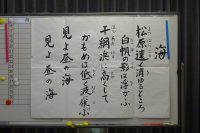 海
松原遠く消ゆるところ
白帆の影は浮かぶ
干網浜に高くして
かもめは低く波に飛ぶ
見よ昼の海
見よ昼の海